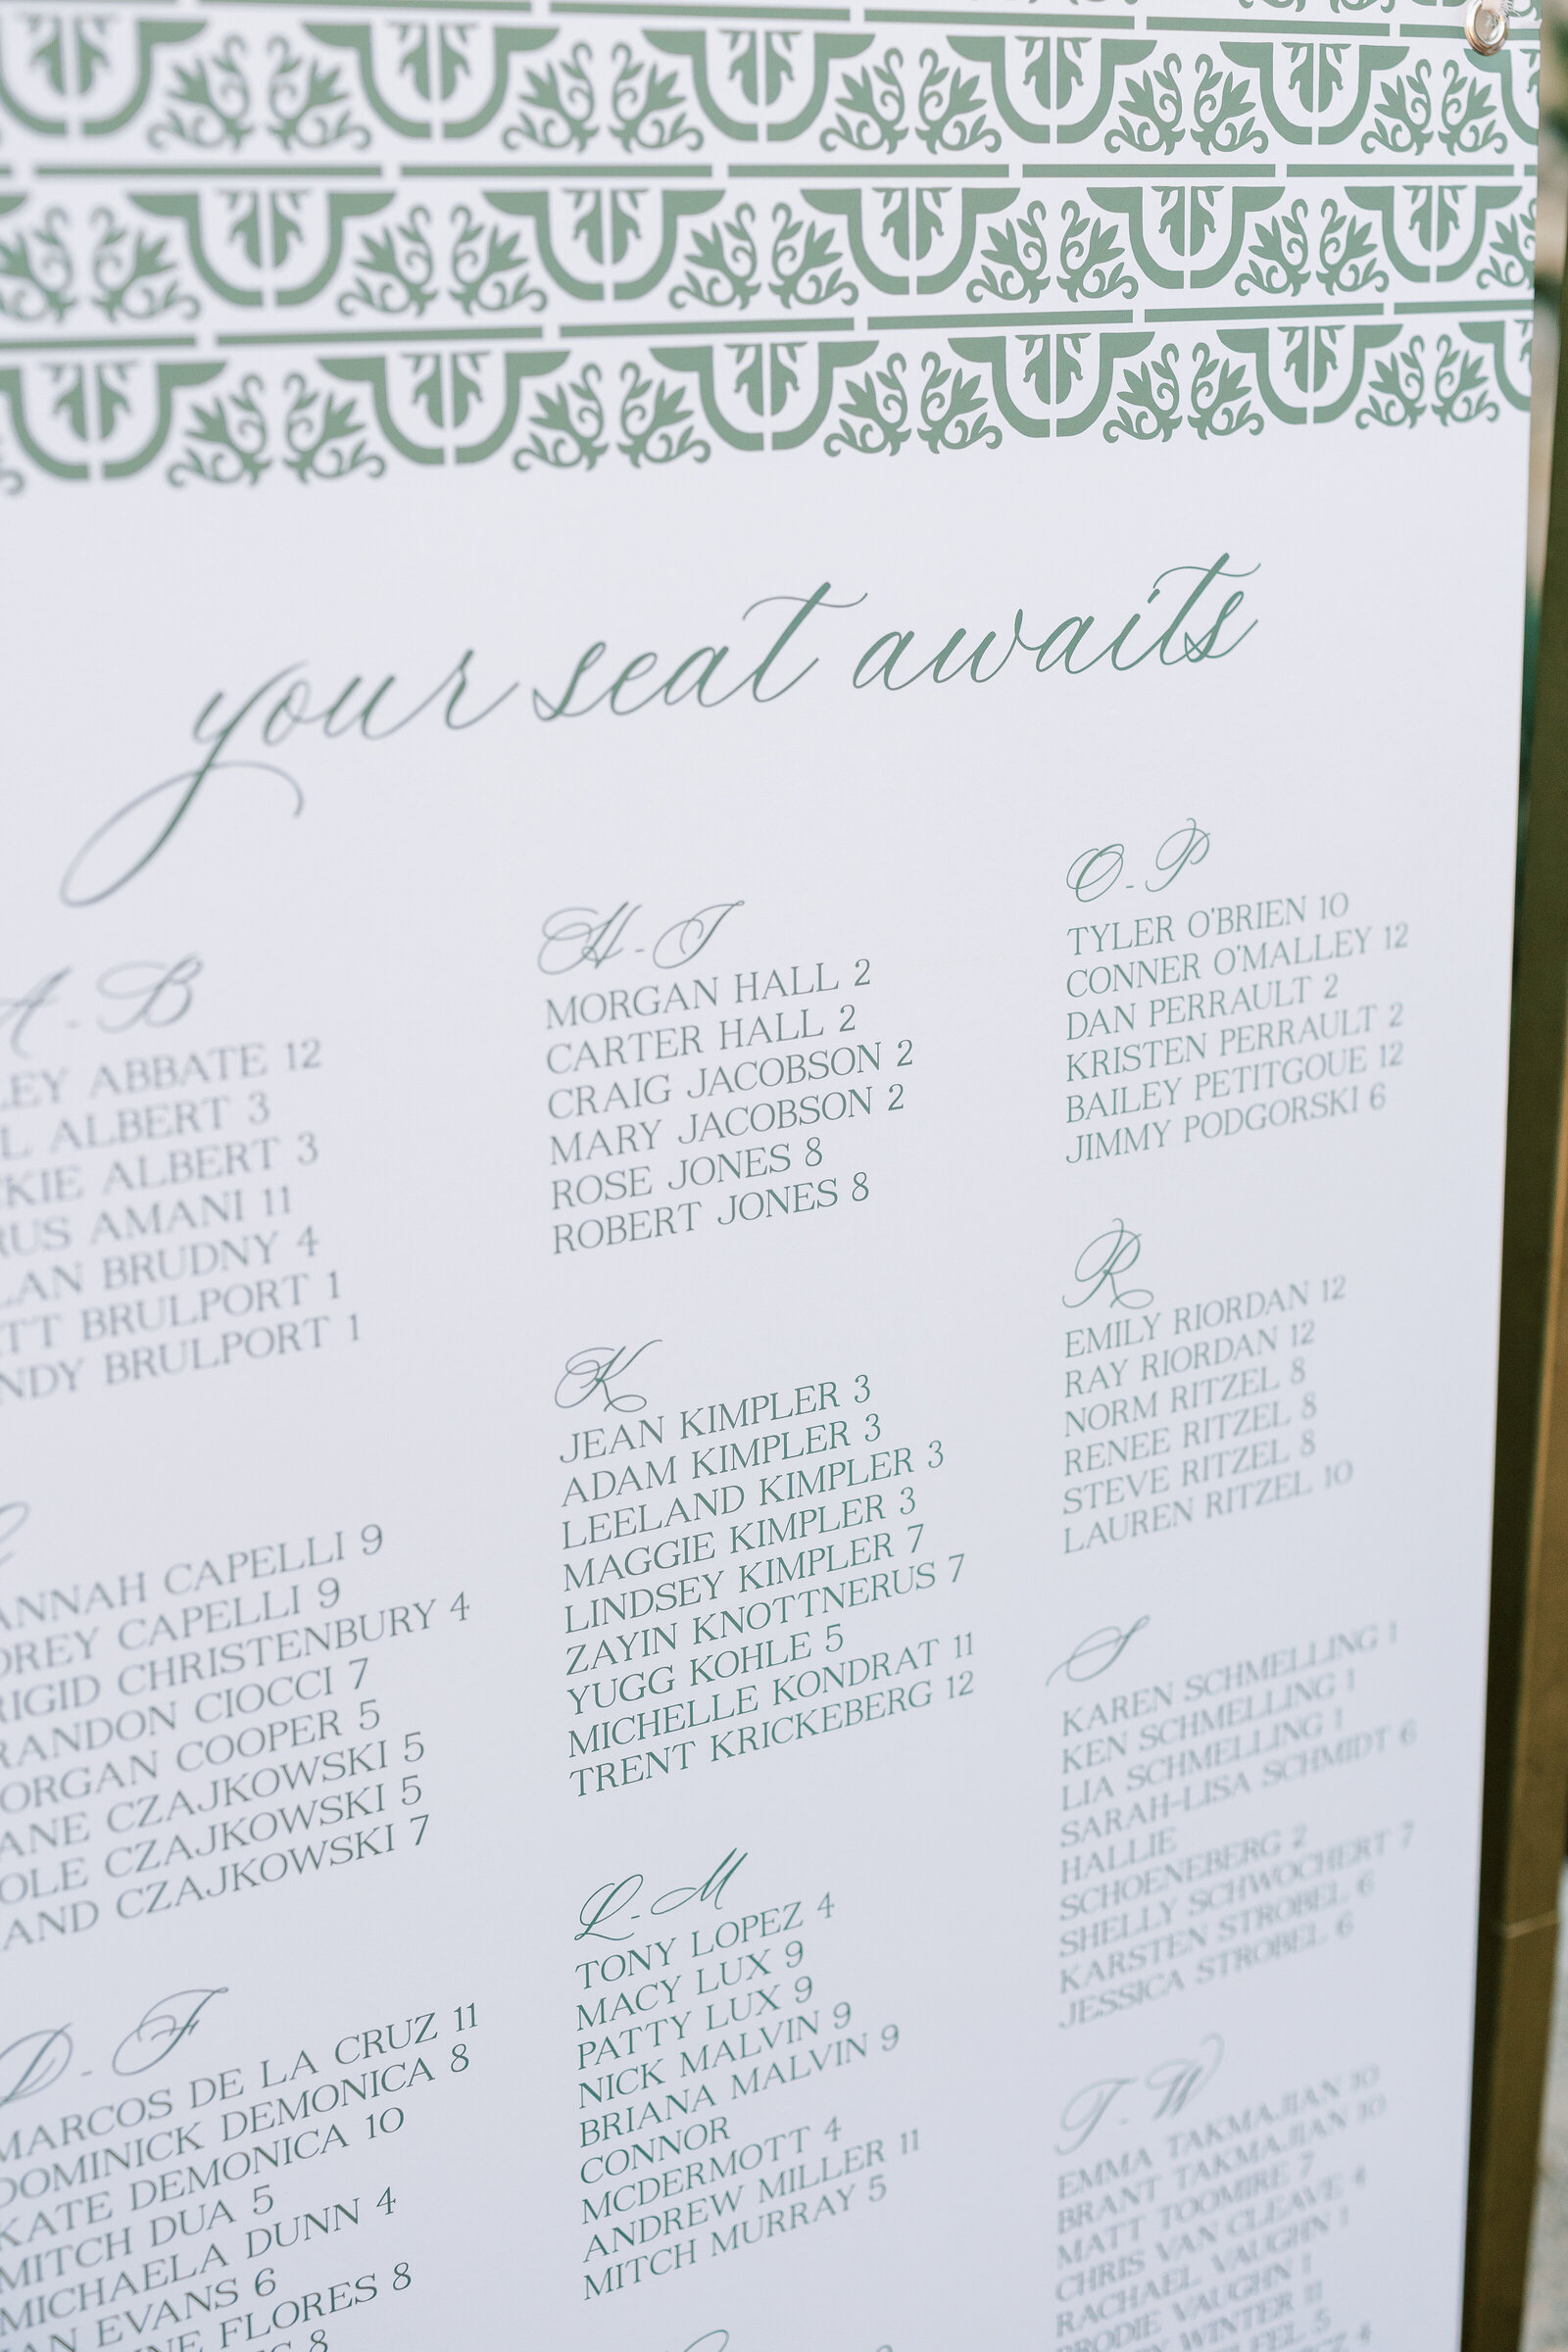 your seat awaits
A - B
ABBATE 12
ALBERT 3
ALBERT 3
AMANI 11
BRUDNY 4
BRULPORT 1
BRULPORT 1
CAPELLI 9
CAPELLI 9
CHRISTENBURY 4
CIOCCI 7
COOPER 5
CZAJKOWSKI 5
CZAJKOWSKI 5
CZAJKOWSKI 7
D - F
MARCOS DE LA CRUZ 11
DOMINICK DEMONICA 8
KATE DEMONICA 10
MITCH DUA 5
MICHAELA DUNN 4
EVANS 6
FLORES 8
8
H - J
MORGAN HALL 2
CARTER HALL 2
CRAIG JACOBSON 2
MARY JACOBSON 2
ROSE JONES 8
ROBERT JONES 8
K
JEAN KIMPLER 3
ADAM KIMPLER 3
LEELAND KIMPLER 3
MAGGIE KIMPLER 3
LINDSEY KIMPLER 7
ZAYIN KNOTTNERUS 7
YUGG KOHLE 5
MICHELLE KONDRAT 11
TRENT KRICKEBERG 12
L - M
TONY LOPEZ 4
MACY LUX 9
PATTY LUX 9
NICK MALVIN 9
BRIANA MALVIN 9
CONNOR
MCDERMOTT 4
ANDREW MILLER 11
MITCH MURRAY 5
O - P
TYLER O'BRIEN 10
CONNER O'MALLEY 12
DAN PERRAULT 2
KRISTEN PERRAULT 2
BAILEY PETITGOUE 12
JIMMY PODGORSKI 6
R
EMILY RIORDAN 12
RAY RIORDAN 12
NORM RITZEL 8
RENEE RITZEL 8
STEVE RITZEL 8
LAUREN RITZEL 10
S
KAREN SCHMELLING 1
KEN SCHMELLING 1
LIA SCHMELLING 1
SARAH-LISA SCHMIDT 6
HALLIE
SCHOENEBERG 2
SHELLY SCHWOCHERT 7
KARSTEN STROBEL 6
JESSICA STROBEL 6
T - W
EMMA TAKMAJIAN 10
BRANT TAKMAJIAN 10
MATT TOOMIRE 7
CHRIS VAN CLEAVE 4
RACHAEL VAUGHN 1
BRODIE VAUGHN 1
WINTER 11